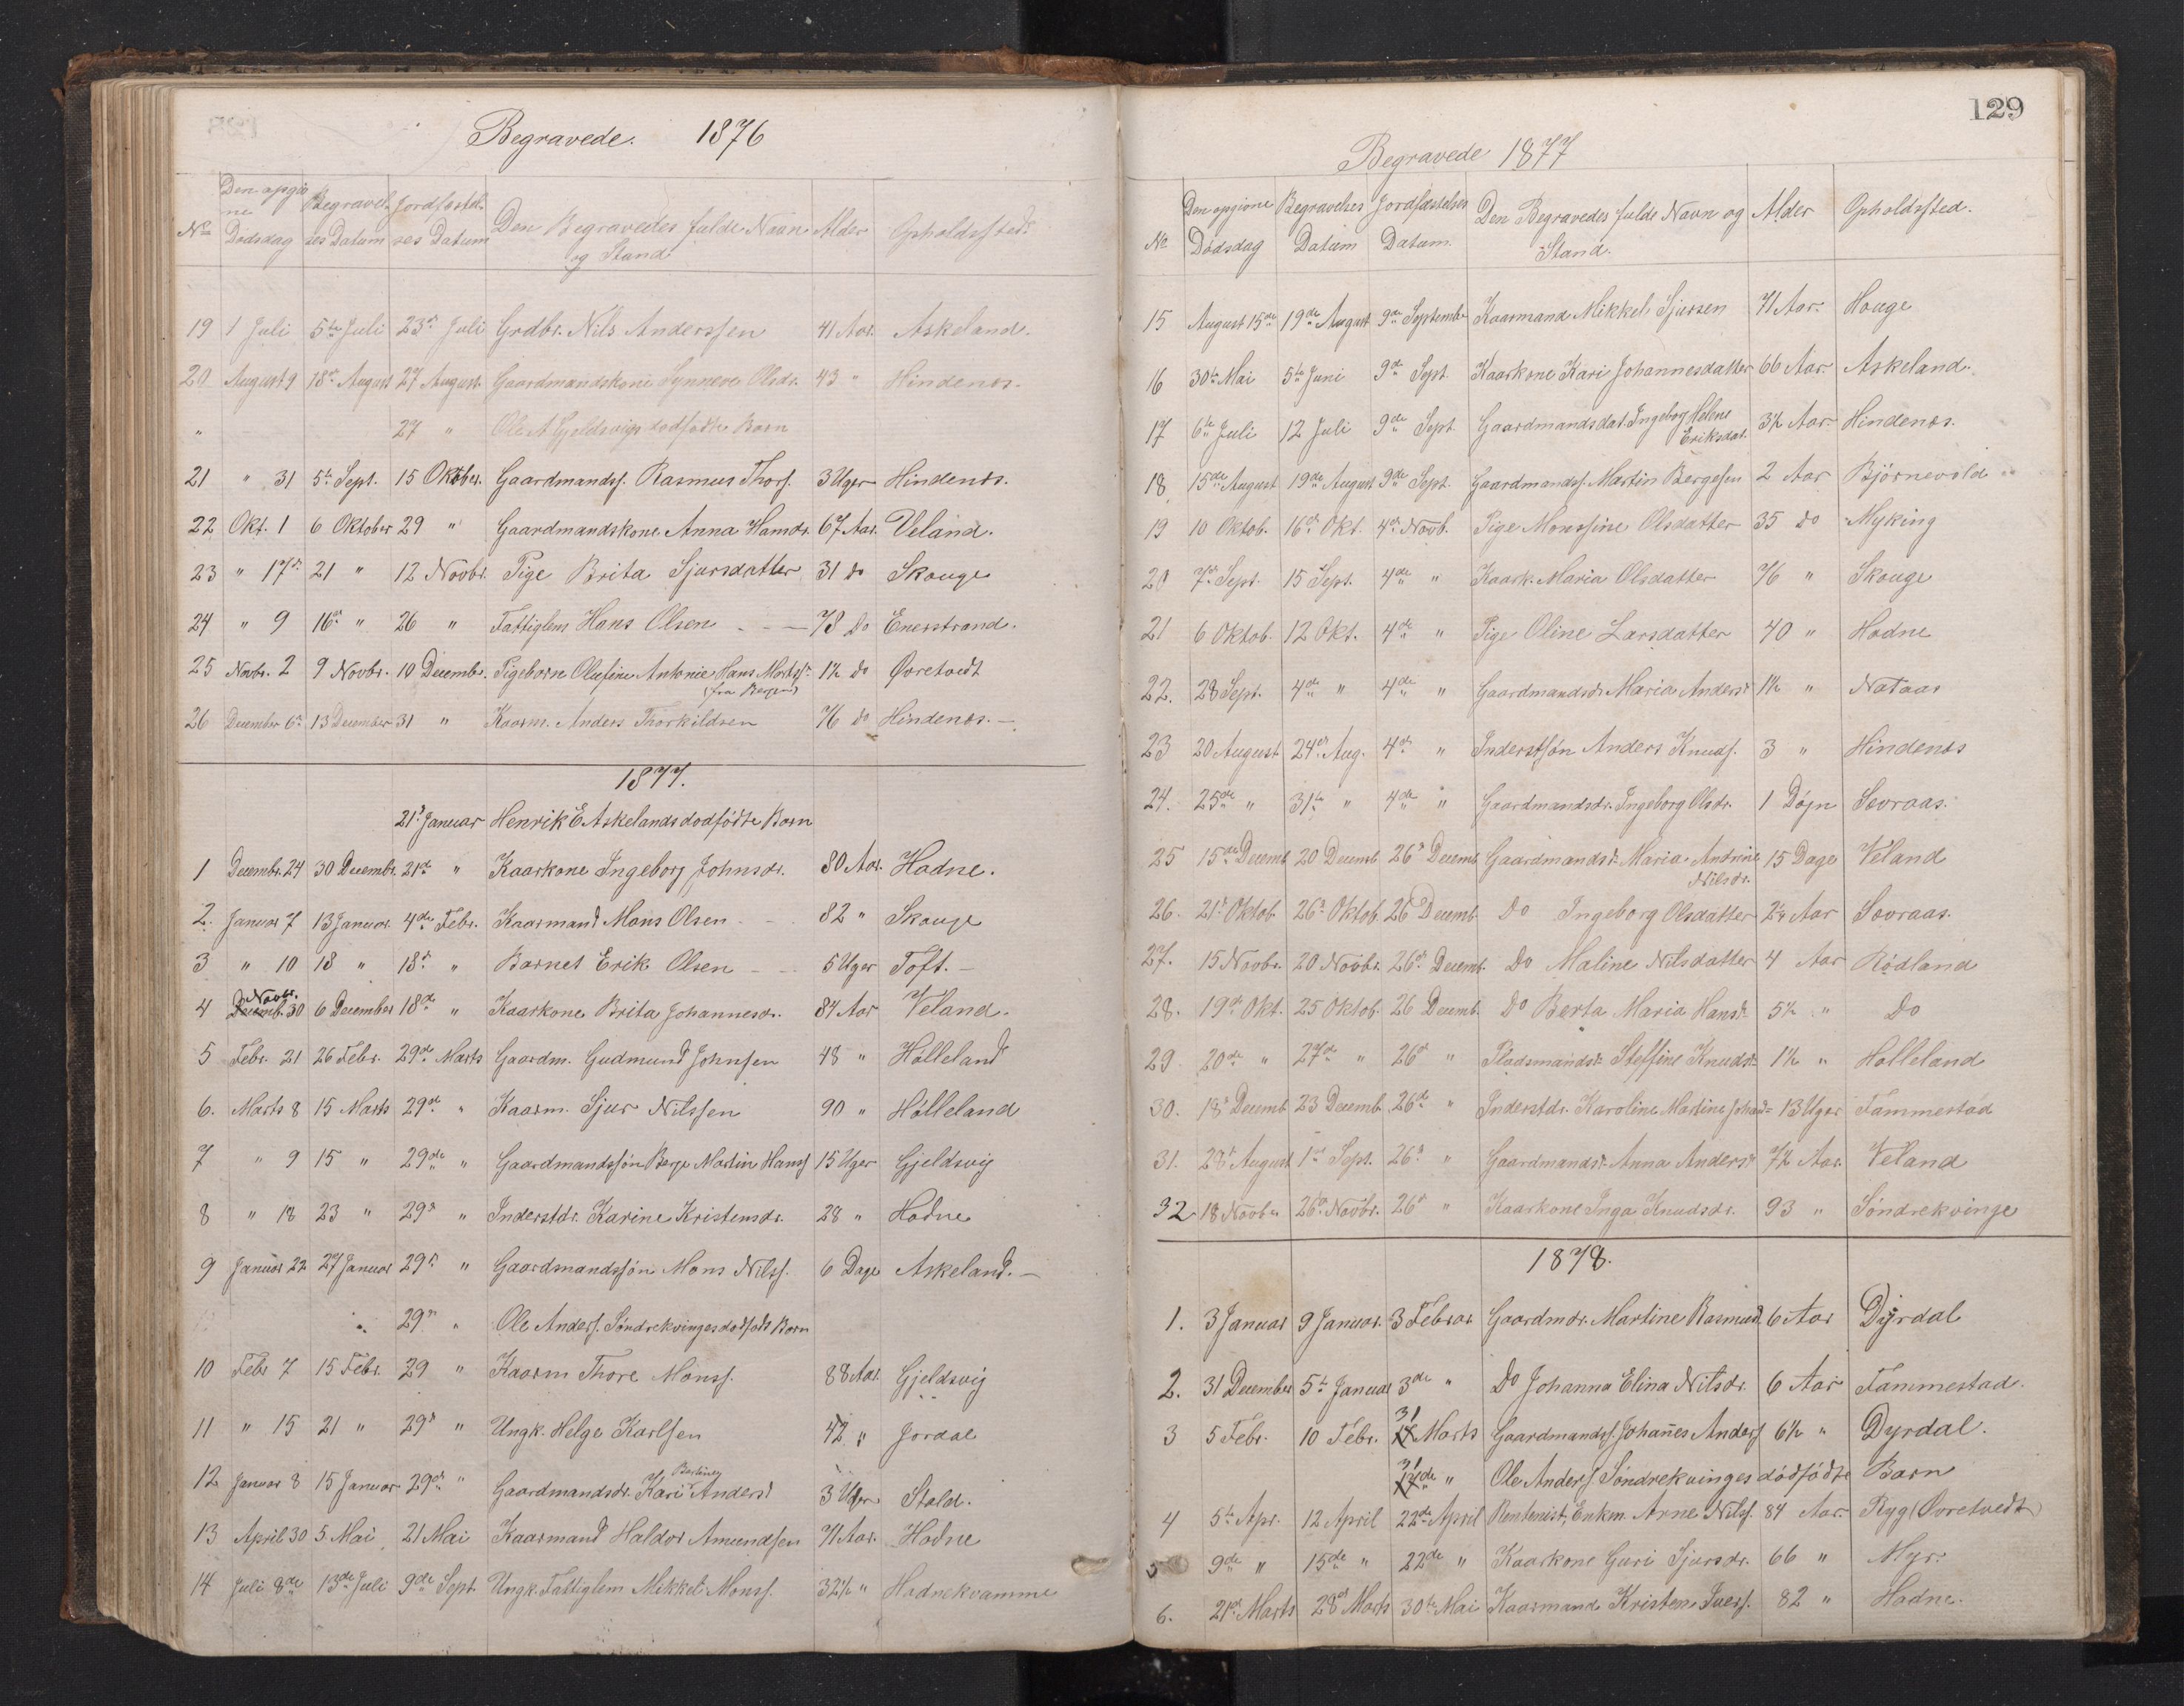 Begravede. 1876
No Den opgivne Dödsdag Begravelses Datum Jordfæstelses Datum Den Begravedes fulde Navn og Stand Alder Opholdssted.
19 1 Juli 5te Juli 23de Juli Grdbr. Nils Anderssen 41 Aar. Askeland.
20 August 9 18de August 27 August. Gaardmandskone Synneve Olsdr. 43 " Hindenes.
" 27 " Ole A. Gjeldsvigs dodfödte Barn
21 " 31 5te Sept. 15 Oktober. Gaardmandss. Rasmus Thors. 3 Uger Hindenes.
22 Okt. 1 6 Oktober 29 " Gaardmandskone Anna Hansdr. 67 Aar. Veland.
23 " 17de 21 " 12 Novbr. Pige Brita Sjursdatter 31 do Skouge
24 " 9 16de " 26 " Fattiglem Hans Olsen - - - 78 Do Enesstrand.
25 Novbr. 2 9 Novbr. 10 Decembr. Pigebarn Olufine Antonie Hans (fra Bergen) 1½ do Øvretvedt
26 December 6te 13 December 31 " Kaarm. Anders Thorkildsen 76 do Hindenes. -
1877.
21de Januar Henrik E Askelands dodfödte Barn
1 Decembr. 24 30 Decembr. 21de " Kaarkone Ingeborg Johnsdr. 80 Aar. Hodne.
2. Januar 7 13 Januar. 4de Febr. Kaarmand Mons Olsen - - 82 " Skouge
3 " 10 18 " 18de " Barnet Erik Olsen - - 5 Uger Toft. -
4 Novbr. 30 6 December 18de " Kaarkone Brita Johannesdr. 84 Aar Veland.
5 Febr. 21 26 Febr. 29de Marts Gaardm. Gudmund Johnsen 48 " Holleland
6. Marts 8 15 Marts 29de " Kaarm. Sjur Nilssen 90 " Holleland
7 " 9 15 " 29de " Gaardmandssön Berge Martin Hanss 15 Uger Gjeldsvig
8 " 18 23 " 29de " Inderstdr. Karine Kristensdr. 28 " Hodne
9 Januar 22 27 Januar 29de " Gaardmandssön Mons Nilss. 6 Dage Askeland. -
29de " Ole Anders. Söndrekvinges dodfödte Barn
10 Febr 7 15 Febr. 29 " Kaarm Thore Monss. 88 Aar. Gjeldsvig
11 " 15 21 " 29de " Ungk. Helge Karlsen 42 " Jordal
12 Januar 8 15 Januar 29de " Gaardmandsdr. Kari Andersd 3 Uger Stald.
13 April 30 5 Mai 21 Mai Kaarmand Haldor Amundsen 71 Aar. Hodne
14 Juli 8de 13de Juli 9de Sept. Ungk. Fattiglem Mikkel Monss. 32½ " Hodnekvamme
129
Begravede 1877
No Den opgivne Dödsdag Begravelses Datum Jordfæstelses Datum. Den Begravedes fulde Navn og Stand. Alder Opholdssted.
15 August 15de 19de August 9de September Kaarmand Mikkel Sjursen 71 Aar. Houge
16 30te Mai 5te Juni 9de Sept Kaarkone Kari Johannesdatter 66 Aar Askeland.
17 6te Juli 12 Juli 9de Sept Gaardmandsdat. Ingeborg Helene Eriksdat. 3½ Aar Hindenes.
18 15de August 19de August 9de Sept. Gaardmandss. Martin Bergesen 2 Aar Björnevold
19 10 Oktob. 16de Okt. 4de Novb. Pige Monssine Olsdatter 35 do Myking
20 7de Sept. 15 Sept. 4de " Kaark. Maria Olsdatter 76 " Skouge
21 6 Oktob. 12 Okt. 4de " Pige Oline Larsdatter 40 " Hodne
22. 28 Sept. 4de " 4de " Gaardmandsd. Maria Andersd 1½ " Nataas
23 20 August 24de Aug. 4de " Inderstsön Anders Knuds. 3 " Hindenes
24. 25de " 31te " 4de " Gaardmandsdr. Ingeborg Olsdr. 1 Dögn Sovraas.
25 15de Decemb. 20 Decemb 26de Decemb. Gaardmandsd. Maria Andrine Nilsdr. 15 Dage Veland
26. 21de Oktob. 26de Oktob. 26 Decemb. Do Ingeborg Olsdatter 2¼ Aar Sovraas.
27. 15 Novbr. 20 Novbr. 26de Decemb. Do Maline Nilsdatter 4 Aar Rödland
28. 19de Okt. 25 Oktob. 26 Decemb. Do Berta Maria Hansd. 5½ " Do
29 20de " 27de " 26de " Pladsmandsd. Steffine Knudsd. 1½ " Holleland
30. 18de Decemb 23 Decemb. 26de " Inderstdr. Karoline Martine Johan= 13 Uger Fammestad
31. 28de August 1ste Sept. 26de " Gaardmandsd. Anna Andersd 7½ Aar. Veland
32 18 Novbr 26de Novbr. 26de " Kaarkone Inga Knudsdr. 93 " Söndrekvinge
1878.
1. 3 Januar 9 Januar. 3 Februar Gaardmdr. Martine Rasmusd. 6 Aar Dyrdal
2. 31 December 5te Januar 3de " Do Johanna Elina Nilsdr. 6 Aar Fammestad.
3 5 Febr. 10 Febr. 31 Marts Gaardmandss. Johañes Anders 6½ " Dyrdal.
31 de " Ole Anders Söndrekvinges dödfödte Barn
4 5te Apr. 12 April 22de April Rentenist, Enkm. Arne Nilss. 84 Aar. Ryg (Øvretvedt)
5 9de " 15de " 22de " Kaarkone Guri Sjursdr. 66 " Myr.
6. 21de Marts 28de Marts 30te Mai Kaarmand Kristen Iverss. 82 " Hodne.